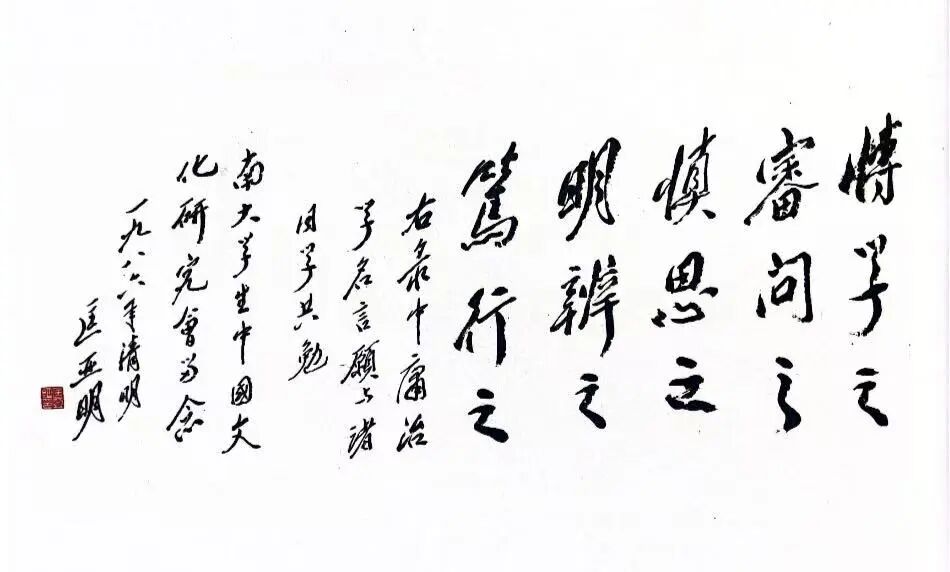 博学之
審问之
慎思之
明辨之
篤行之
右录中庸治
学名言願与诸
同学共勉
南大学生中國文
化研究會留念
一九八六年清明
匡亚明